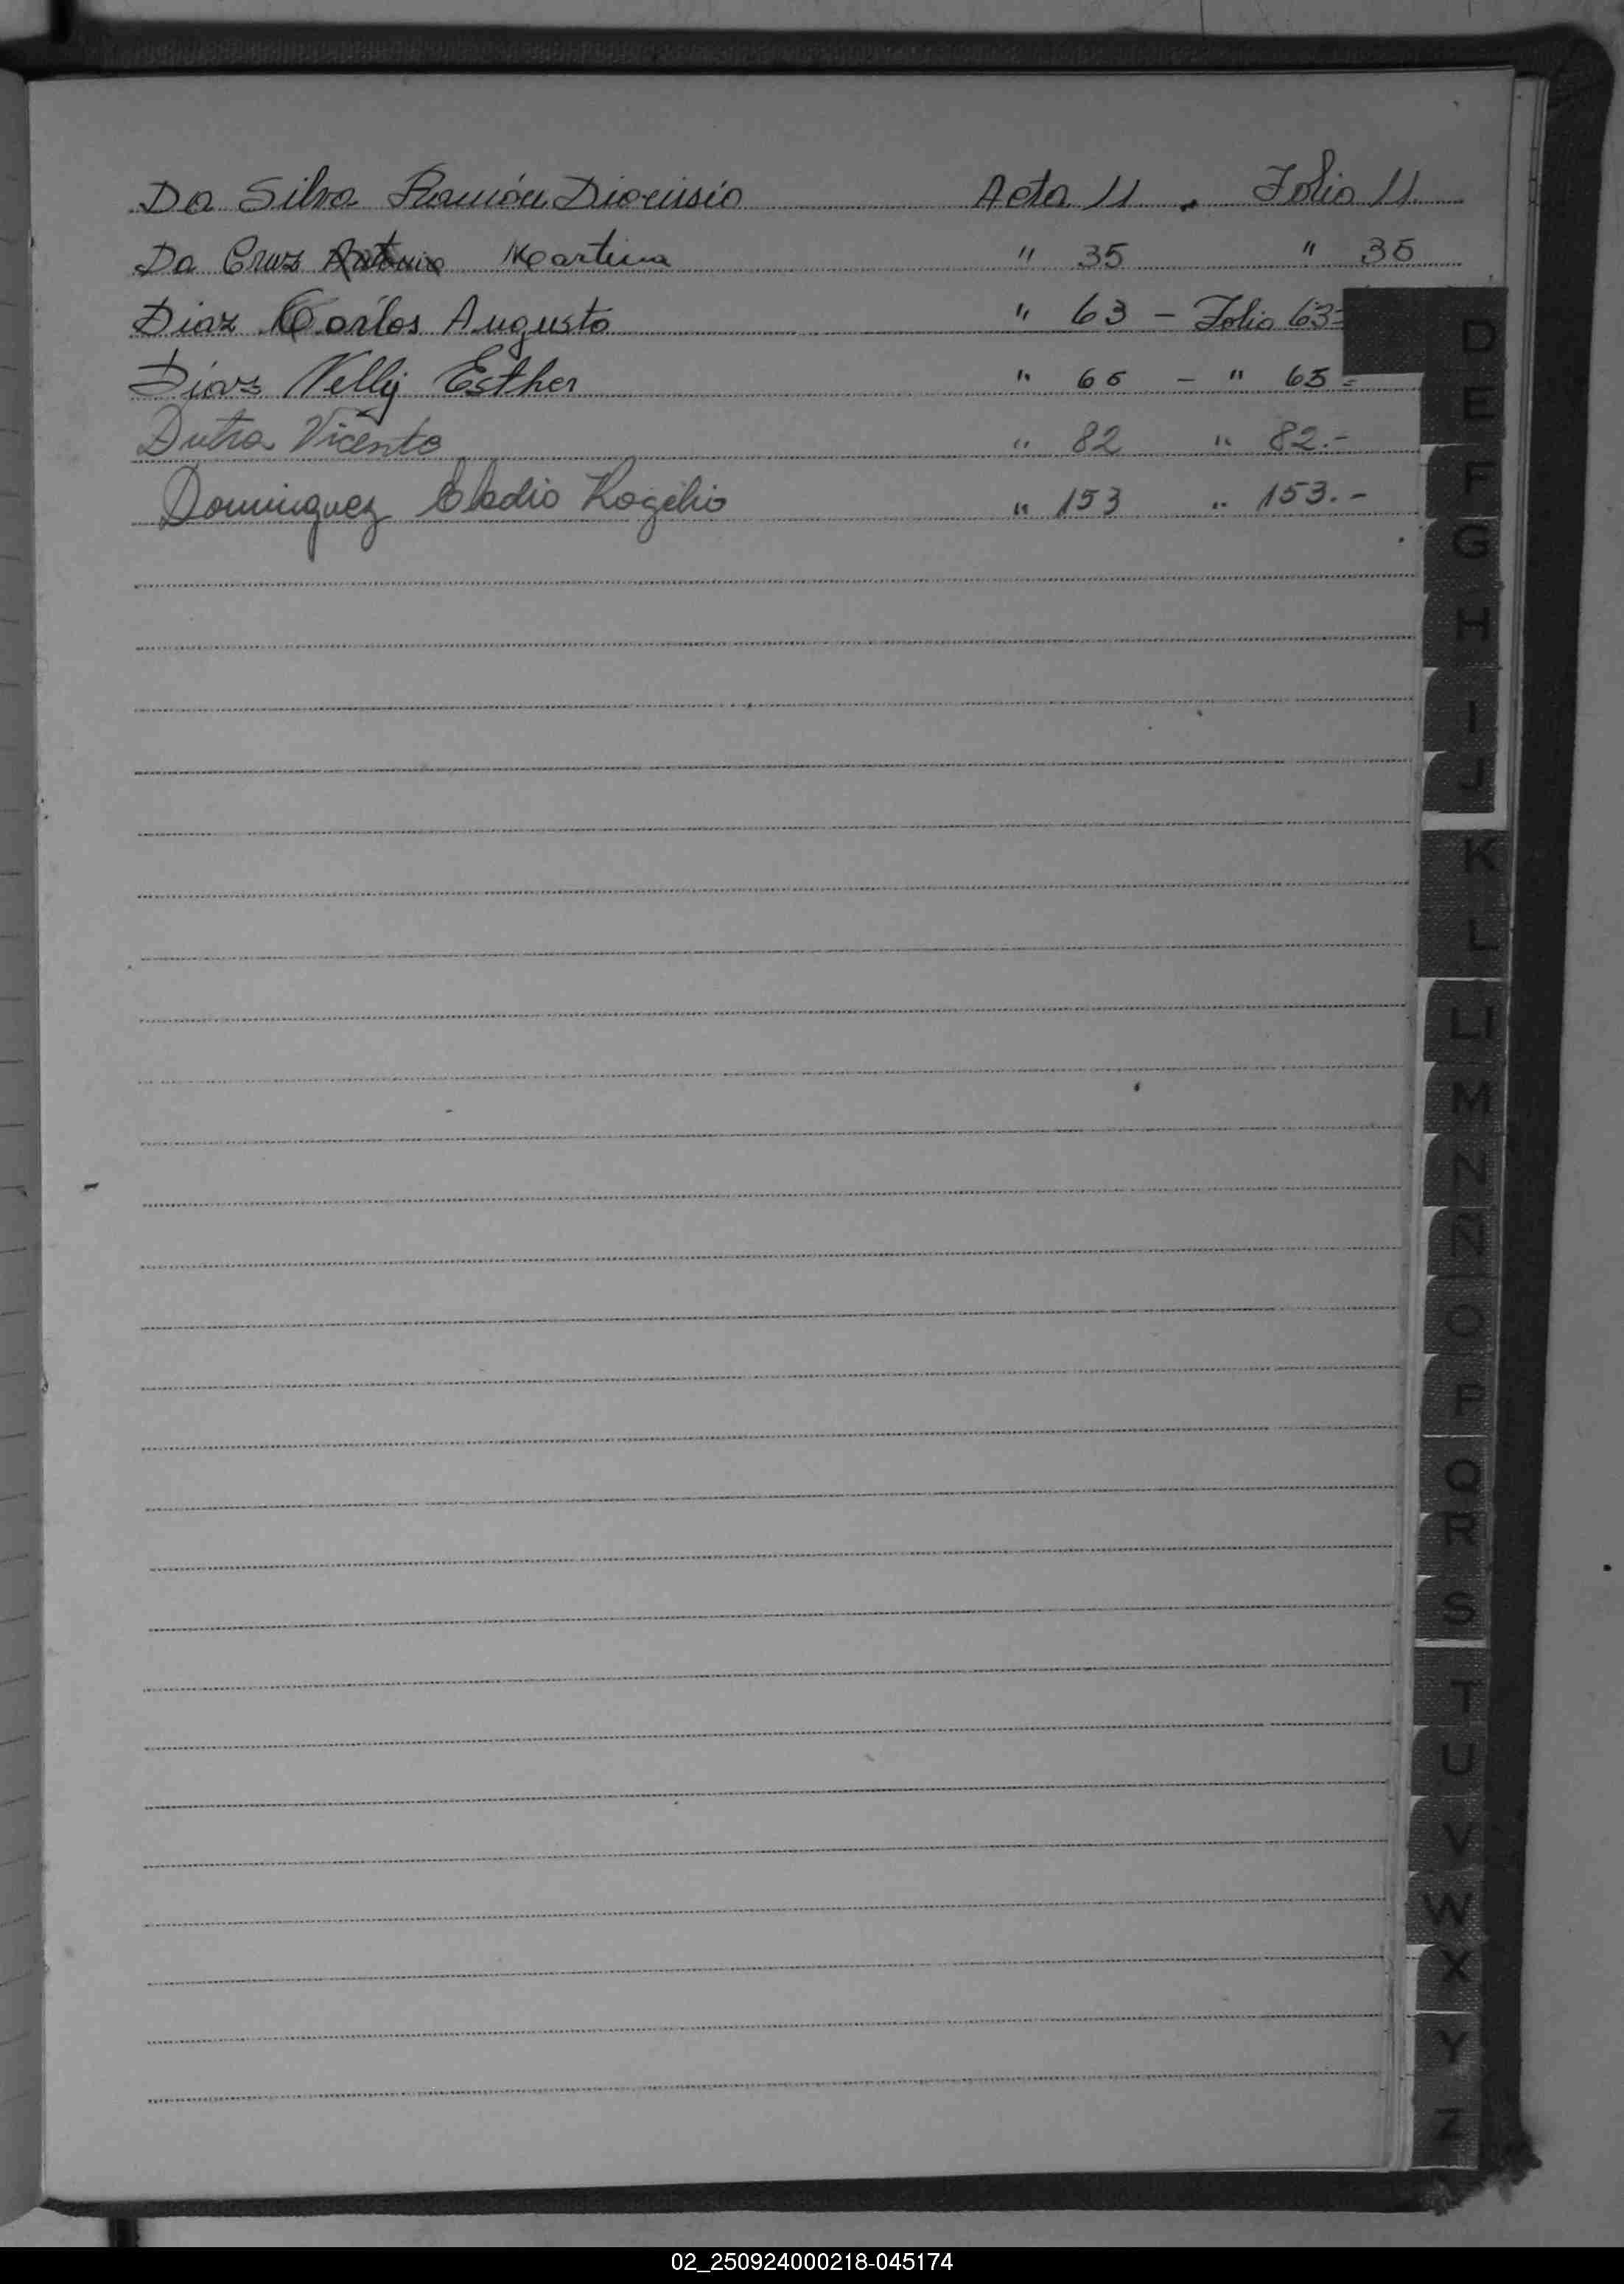 Da Silva Ramón Dionisio Acta 11. Folio 11.
Da Cruz Antonia Martina " 35 " 35
Diaz Carlos Augusto " 63 - Folio 63=
Diaz Nelly Esther " 65 - " 65=
Dutra Vicente " 82 " 82.-
Dominguez Eladio Rogelio " 153 " 153.-
D
E
F
G
H
I
J
K
L
Ll
M
N
Ñ
O
P
Q
R
S
T
U
V
W
X
Y
Z
02_250924000218-045174